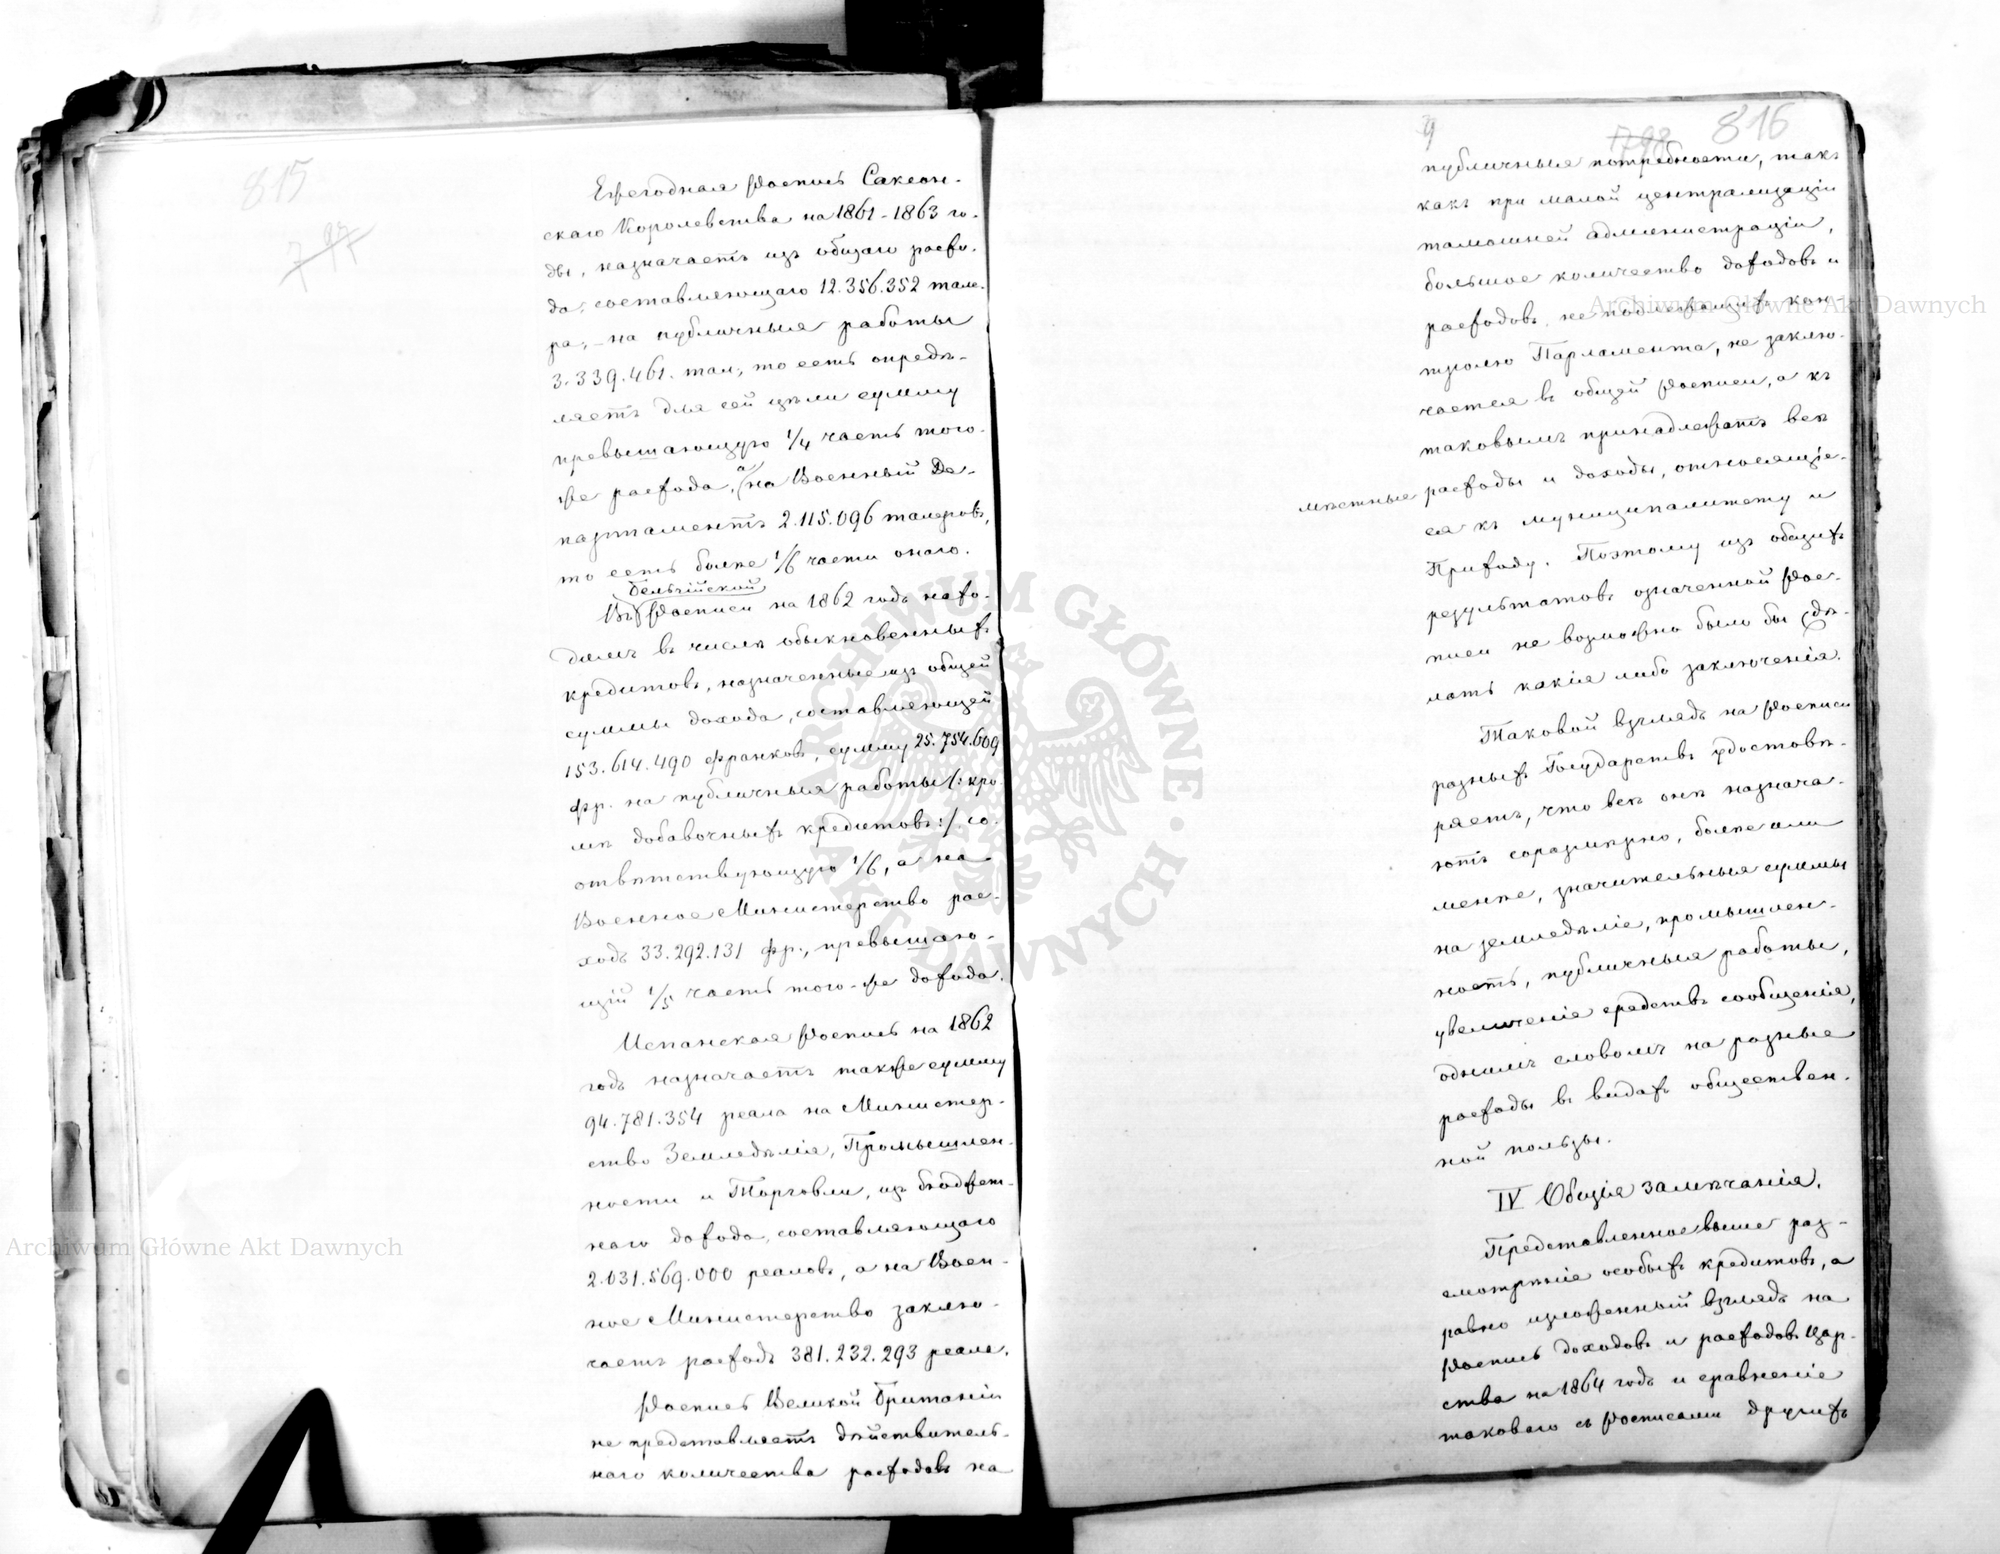 815
797
Ежегодная Роспись Саксон-
скаго Королевства на 1861-1863 го-
ды, назначаетъ изъ общаго расхо-
да, составляющаго 12.356.352 тале-
ра, на публичныя работы
3.339.461. тал; то есть опредѣ-
ляетъ для сей цѣли сумму
превышающую 1/4 часть того-
же расхода, а на Военный Де-
партаментъ 2.115.096 талеровъ,
то есть болѣе 1/6 части онаго.
Бельгійской
Въ Росписи на 1862 годъ нахо-
димъ въ числѣ обыкновенныхъ
кредитовъ, назначенные изъ общей
суммы дохода, составляющей
153.614.490 франковъ, сумму 25.754.609
фр. на публичныя работы /: кро
мѣ добавочныхъ кредитовъ :/ со-
отвѣтствующую 1/6, а на
Военное Министерство рас-
ходъ 33.292.131 фр., превышаю-
щій 1/5 часть того-же дохода.
Испанская Роспись на 1862
годъ назначаетъ также сумму
94.781.354 реала на Министер-
ство Земледѣлія, Промышлен-
ности и Торговли, изъ бюджет-
наго дохода, составляющаго
2.031.569.000 реаловъ, а на Воен-
ное Министерство заклю-
чаетъ расходъ 381.232.293 реала.
Роспись Великой Британіи
не представляетъ дѣйствитель-
наго количества расходовъ на
9
798 816
публичныя потребности, такъ
какъ при малой централизаціи
тамошней администраціи,
большое количество доходовъ и
расходовъ, не подлежащихъ кон
тролю Парламента, не заклю-
чается въ общей Росписи, а къ
таковымъ принадлежатъ всѣ
мѣстные расходы и доходы, относящіе-
ся къ муниципалитету и
Приходу. Поэтому изъ общихъ
результатовъ означенной Рос-
писи не возможно было бы сдѣ-
лать какія либо заключенія.
Таковой взглядъ на Росписи
разныхъ Государствъ удостовѣ-
ряетъ, что всѣ онѣ назнача-
ютъ соразмѣрно, болѣе или
менѣе, значительныя суммы
на земледѣліе, промышлен-
ность, публичныя работы,
увеличеніе средствъ сообщенія,
однимъ словомъ на разные
расходы въ видахъ обществен-
ной пользы.
IV Общія замѣчанія.
Представленное выше раз-
смотрѣніе особыхъ кредитовъ, а
равно изложенный взглядъ на
Роспись доходовъ и расходовъ Цар-
ства на 1864 годъ и сравненіе
таковаго съ Росписами другихъ
Archiwum Główne Akt Dawnych
Archiwum Główne Akt Dawnych
ARCHIWUM GŁÓWNE · AKT DAWNYCH ·